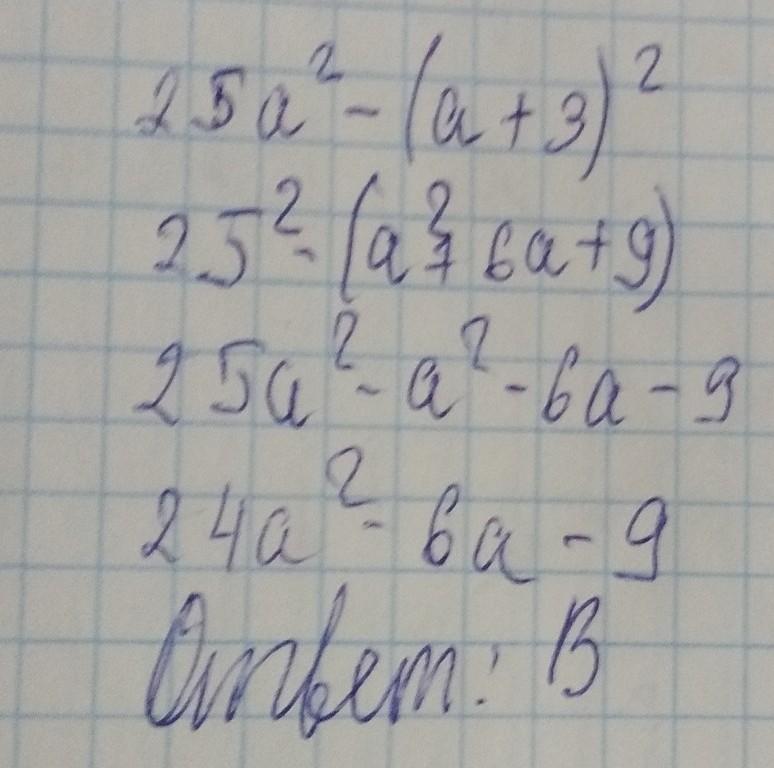 25a² - (a + 3)²
25² - (a² + 6a + 9)
25a² - a² - 6a - 9
24a² - 6a - 9
Ответ: В